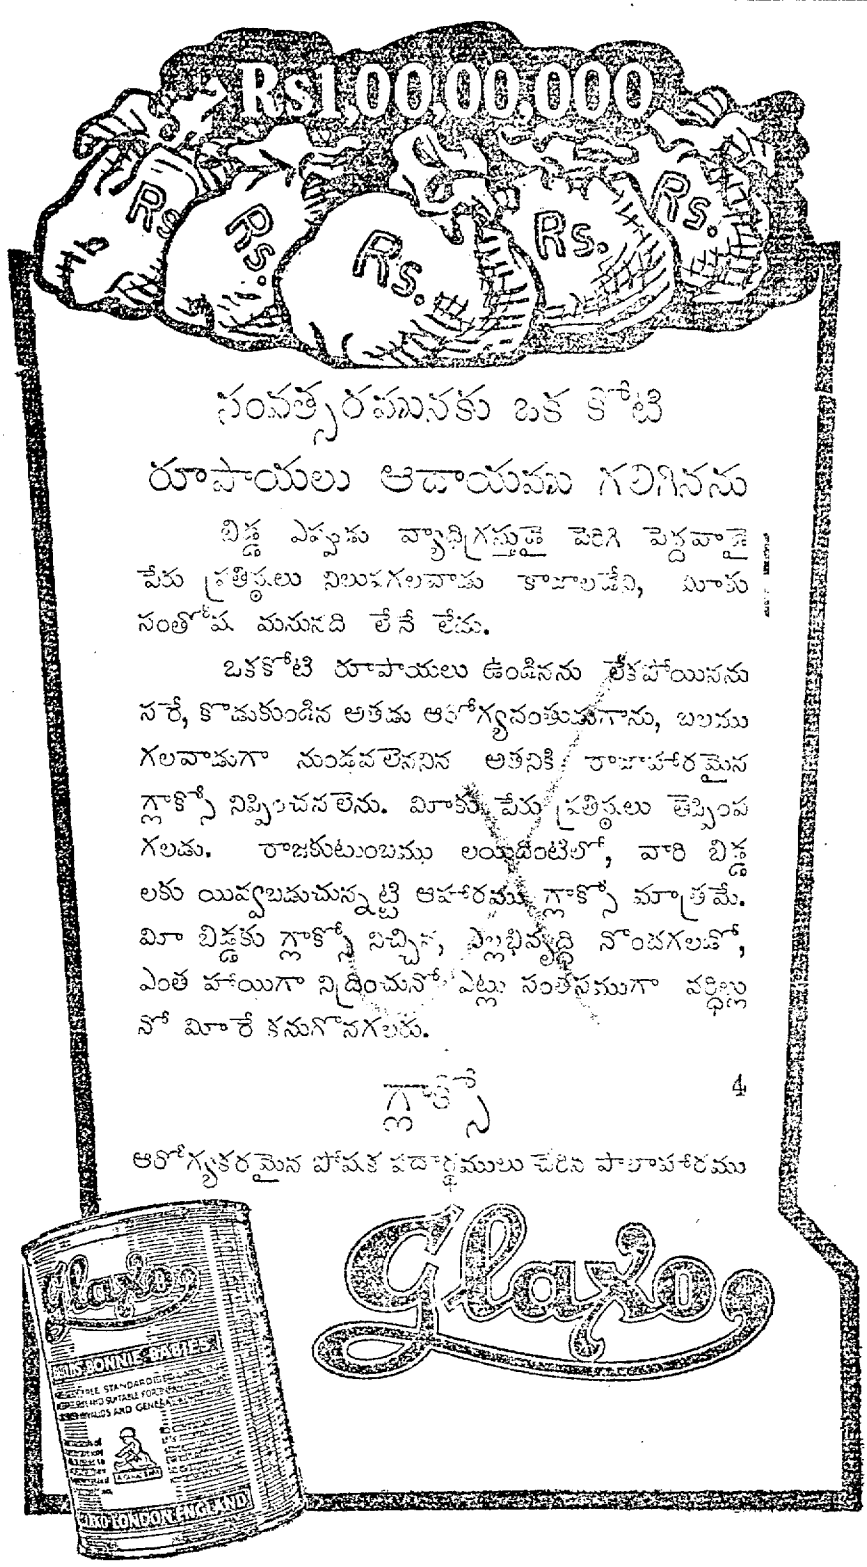 Rs1,00,00,000
Rs. Rs. Rs. Rs. Rs.
సంవత్సరమునకు ఒక కోటి
రూపాయలు ఆదాయము గలిగినను
బిడ్డ ఎప్పుడు వ్యాధిగ్రస్తుడై పెరిగి పెద్దవాడై
పేరు ప్రతిష్ఠలు నిలుపగలవాడు కాజాలడేని, మీకు
సంతోష మనునది లేనే లేదు.
ఒకకోటి రూపాయలు ఉండినను లేకపోయినను
సరే, కొడుకుండిన అతడు ఆరోగ్యవంతుడుగాను, బలము
గలవాడుగా నుండవలెననిన అతనికి రాజాహారమైన
గ్లాక్సో నిప్పించవలెను. మీకు పేరు ప్రతిష్ఠలు తెప్పింప
గలడు. రాజకుటుంబము లయిదింటిలో, వారి బిడ్డ
లకు యివ్వబడుచున్నట్టి ఆహారము గ్లాక్సో మాత్రమే.
మీ బిడ్డకు గ్లాక్సో నిచ్చిన, ఎట్లభివృద్ధి నొందగలడో,
ఎంత హాయిగా నిద్రించునో ఎట్లు సంతసముగా వర్ధిల్లు
నో మీరే కనుగొనగలరు.
గ్లాక్సో 4
ఆరోగ్యకరమైన పోషక పదార్థములు చేరిన పాలాహారము
Glaxo
Glaxo
BUILDS BONNIE BABIES
STANDARDISED
AND SUITABLE FOR
INVALIDS AND GENERAL
GLAXO LONDON ENGLAND